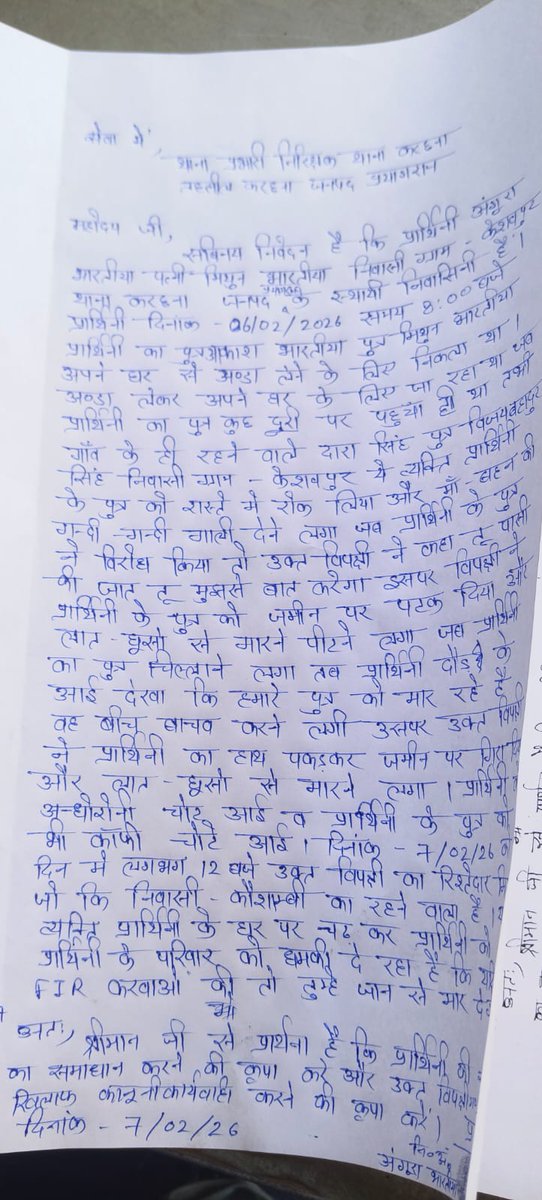 सेवा में,
थाना प्रभारी निरिक्षक थाना करछना
तहसील करछना जनपद प्रयागराज
महोदय जी,
सविनय निवेदन है कि प्रार्थिनी अंगुरा
भारतीया पत्नी मिथुन भारतीया निवासी ग्राम - केशवपुर
थाना करछना जनपद के स्थायी निवासिनी है।
प्रार्थिनी दिनांक - 06/02/2026 समय 8:00 बजे
प्रार्थिनी का पुत्र आकाश भारतीया पुत्र मिथुन भारतीया
अपने घर से अण्डा लेने के लिए निकला था।
अण्डा लेकर अपने घर के लिए जा रहा था जब
प्रार्थिनी का पुत्र कुछ दुरी पर पहुचा ही था तभी
गाँव के ही रहने वाले दारा सिंह पुत्र विजयबहादुर
सिंह निवासी ग्राम - केशवपुर ये व्यक्ति प्रार्थिनी
के पुत्र को रास्ते में रोक लिया और माँ-बहन की
गन्दी-गन्दी गाली देने लगा जब प्रार्थिनी के पुत्र
ने विरोध किया तो उक्त विपक्षी ने कहा तू पासी
की जात तू मुझसे बात करेगा इसपर विपक्षी ने
प्रार्थिनी के पुत्र को जमीन पर पटक दिया और
लात-घूसो से मारने पीटने लगा जब प्रार्थिनी
का पुत्र चिल्लाने लगा तब प्रार्थिनी दौड़ के
आई देखा कि हमारे पुत्र को मार रहे है
वह बीच बाचव करने लगी उसपर उक्त विपक्षी
ने प्रार्थिनी का हाथ पकड़कर जमीन पर गिरा
और लात-घूसो से मारने लगा। प्रार्थिनी
अन्धोरोनी चोट आई व प्रार्थिनी के पुत्र को
भी काँफी चोटे आई। दिनांक - 7/02/26 को
दिन में लगभग 12 बजे उक्त विपक्षी का रिश्तेदार
जो कि निवासी - कौशाम्बी का रहने वाला है।
व्यक्ति प्रार्थिनी के घर पर चढ़ कर प्रार्थिनी को
प्रार्थिनी के परिवार को धमकी दे रहा है कि
FIR करवाओ गी तो तुम्हे जान से मार
अतः, श्रीमान जी से प्रार्थना है कि प्रार्थिनी की
का समाधान करने की कृपा करे और उक्त विपक्षी
खिलाफ कानूनी कार्यवाही करने की कृपा करें।
दिनांक - 7/02/26
अंगुरा भारतीया
अतः, श्रीमान जी